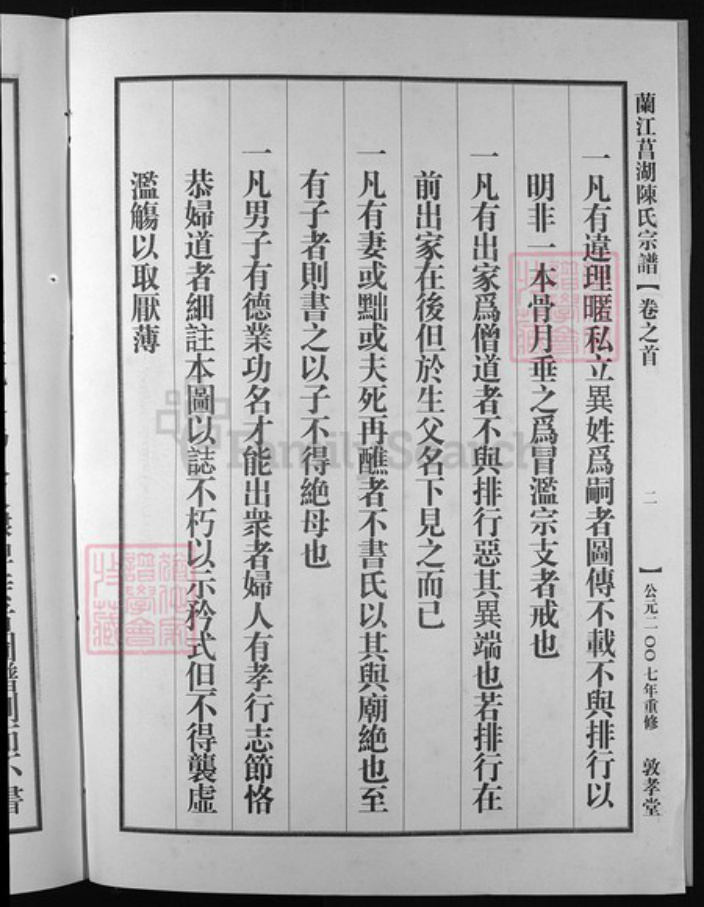 蘭江菖湖陳氏宗譜【卷之首 二 】公元二〇〇七年重修 敦孝堂
一凡有違理暱私立異姓爲嗣者圖傳不載不與排行以
明非一本骨月垂之爲冒濫宗支者戒也
一凡有出家爲僧道者不與排行惡其異端也若排行在
前出家在後但於生父名下見之而己
一凡有妻或黜或夫死再醮者不書氏以其與廟絶也至
有子者則書之以子不得絶母也
一凡男子有德業功名才能出衆者婦人有孝行志節恪
恭婦道者細註本圖以誌不朽以示矜式但不得襲虛
濫觴以取厭薄
FamilySearch